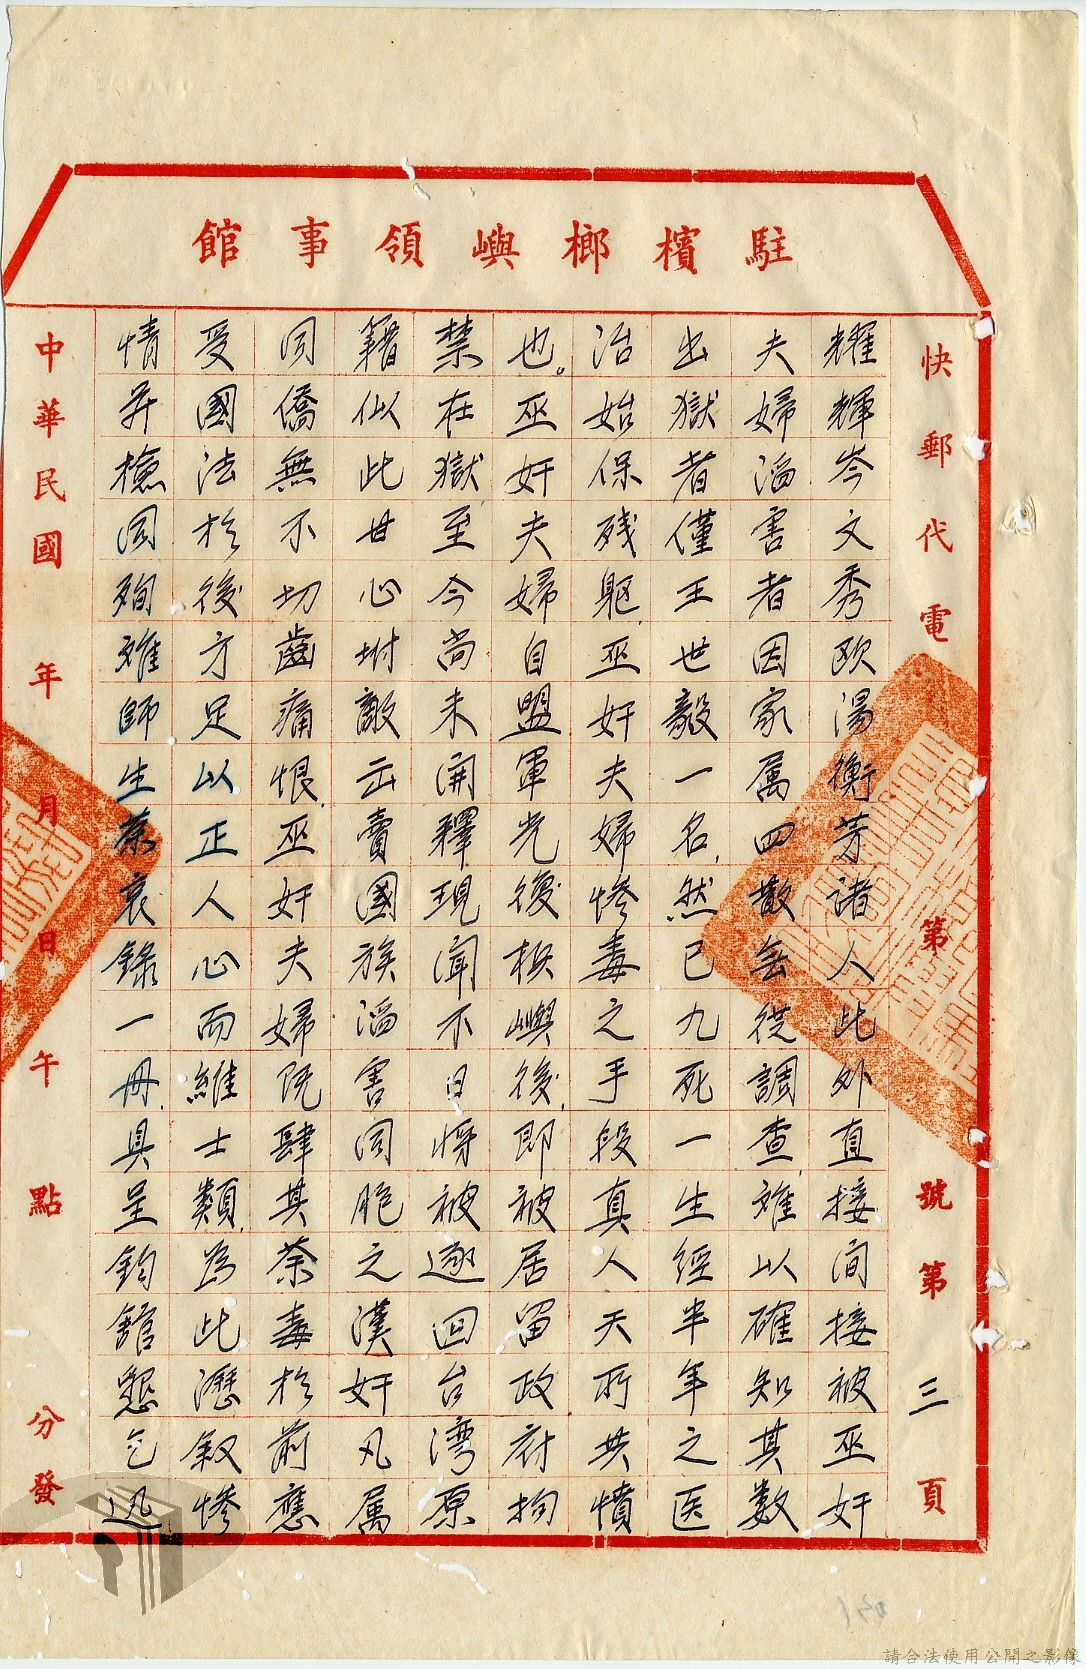 駐檳榔嶼領事館
快郵代電 第 號第三頁
耀輝岑文秀歐湯衡芳諸人此外直接间接被巫奸
夫婦滔害者因家属四散無從調查难以確知其数
出獄者僅王世毅一名然已九死一生經半年之医
治始保残躯巫奸夫婦惨毒之手段真人天所共憤
也。巫奸夫婦自盟軍光復梹嶼後即被居留政府拘
禁在獄至今尚未開釋現聞不日将被逐回台湾原
籍似此甘心坿敵出賣國族滔害同胞之漢奸凡属
同僑無不切齒痛恨巫奸夫婦既肆其荼毒於前應
受國法於後方足以正人心而維士類為此瀝叙惨
情并檢同殉难師生荼哀錄一冊具呈鈞館懇乞迅
中華民國 年 月 日 午 點 分發
請合法使用公開之影像